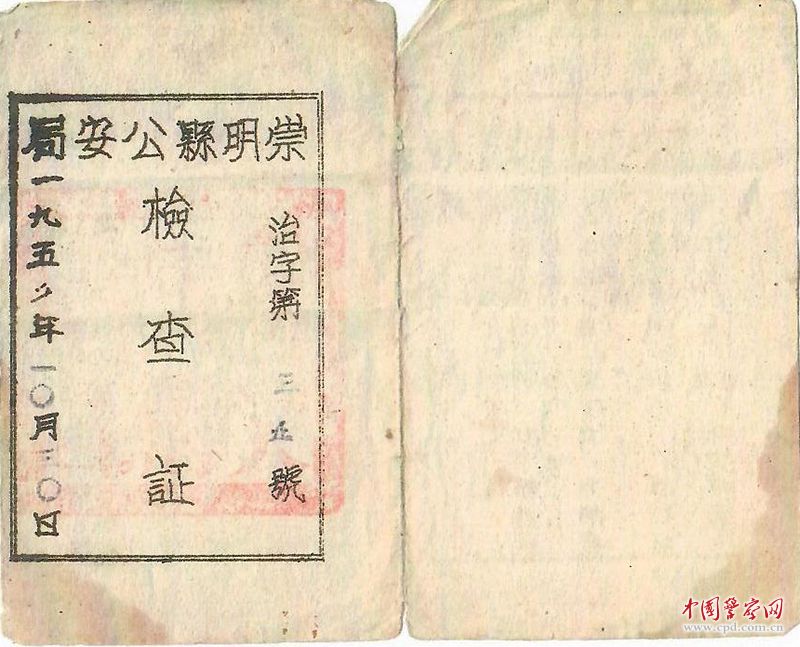 崇明縣公安局
治字第三號
檢查証
一九五年一〇月三〇日
中国警察网
www.cpd.com.cn